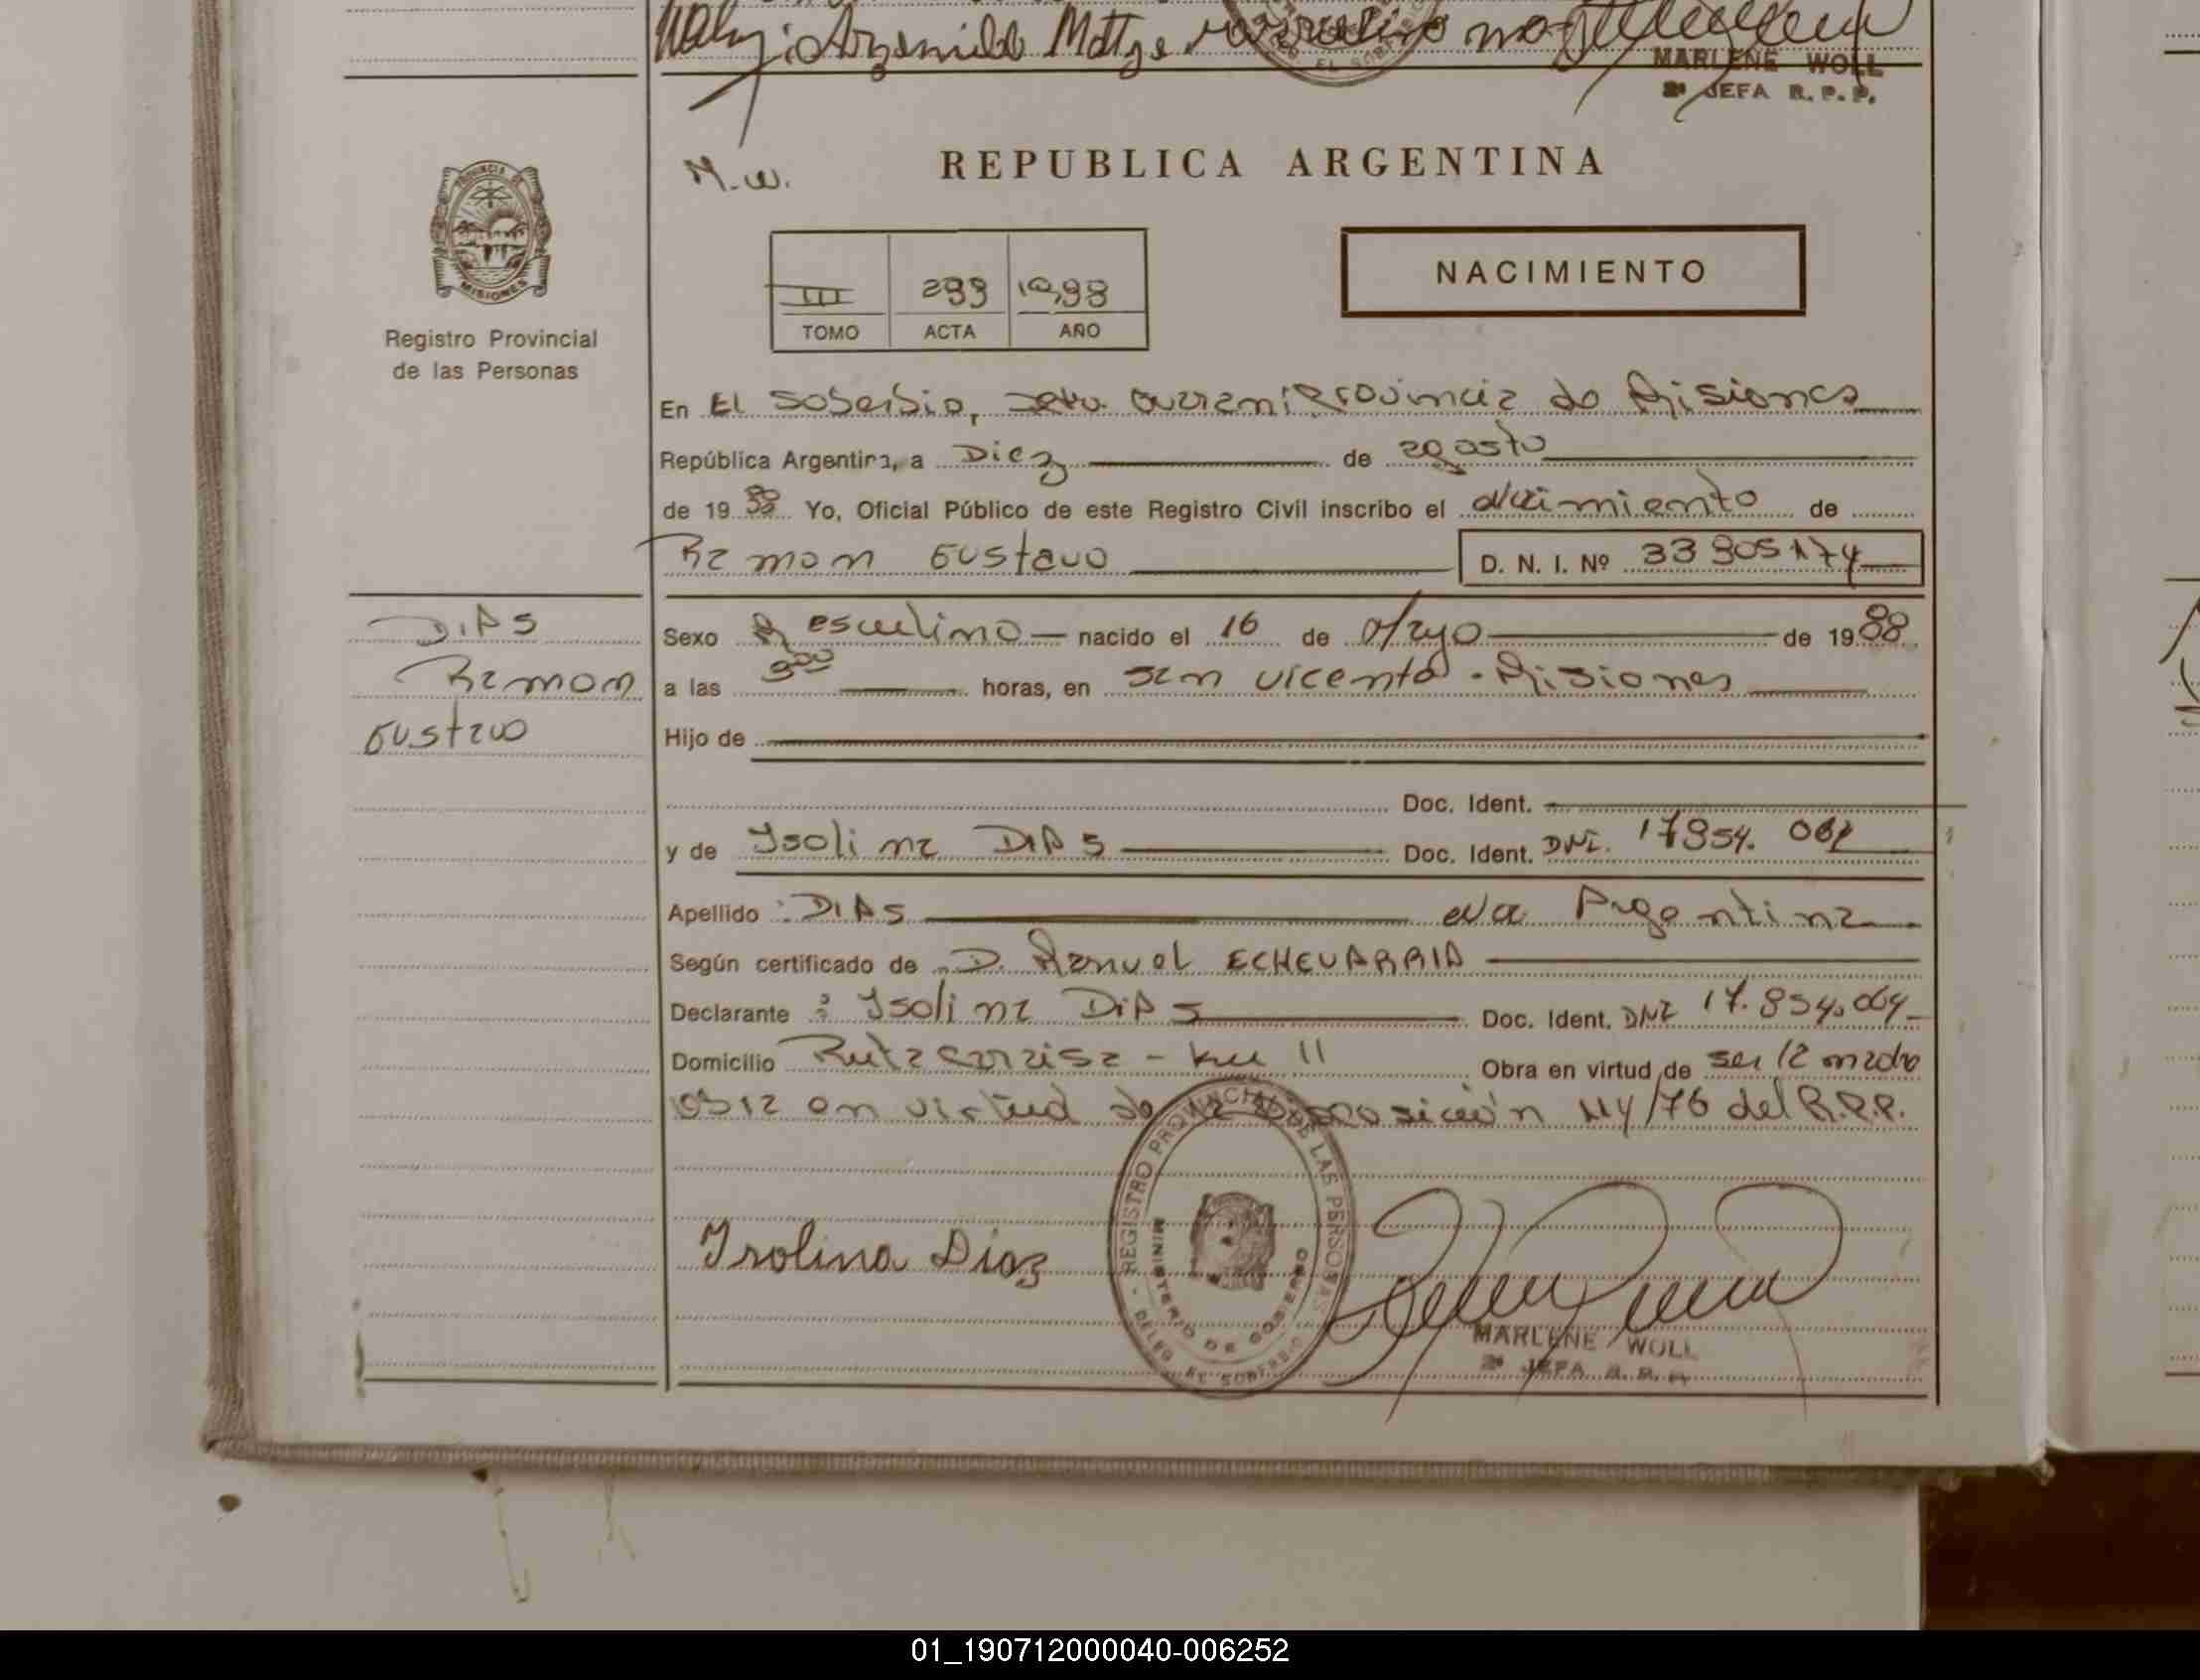 Arzemildo Mattge
MARLENE WOLL
2ª JEFA R. P. P.
M.W.
REPUBLICA ARGENTINA
PROVINCIA DE
MISIONES
Registro Provincial
de las Personas
III 299 1988
TOMO ACTA AÑO
NACIMIENTO
En El Soberbio, Dpto. Guarani Provincia de Misiones
República Argentina, a Diez de agosto
de 19 88 Yo, Oficial Público de este Registro Civil inscribo el Nacimiento de
Ramon Gustavo D. N. I. Nº 33 905174
DIAS
Ramon
Gustavo
Sexo Masculino nacido el 16 de Mayo de 19 88
a las 9 00 horas, en San Vicente - Misiones
Hijo de
Doc. Ident.
y de Isolina DIAS Doc. Ident. DNI. 17854. 064
Apellido : DIAS Na. Argentina
Según certificado de D. Manuel ECHEVARRIA
Declarante : Isolina DiAS Doc. Ident. DNI 17.854.064
Domicilio Ruta costera - km 11 Obra en virtud de ser la madre
en virtud de la Disposición Nº4/76 del R.P.P.
REGISTRO PROVINCIAL DE LAS PERSONAS
MINISTERIO DE GOBIERNO
- DELEG. EL SOBERBIO -
Isolina Diaz
MARLENE WOLL
2ª JEFA R. P. P.
01_190712000040-006252